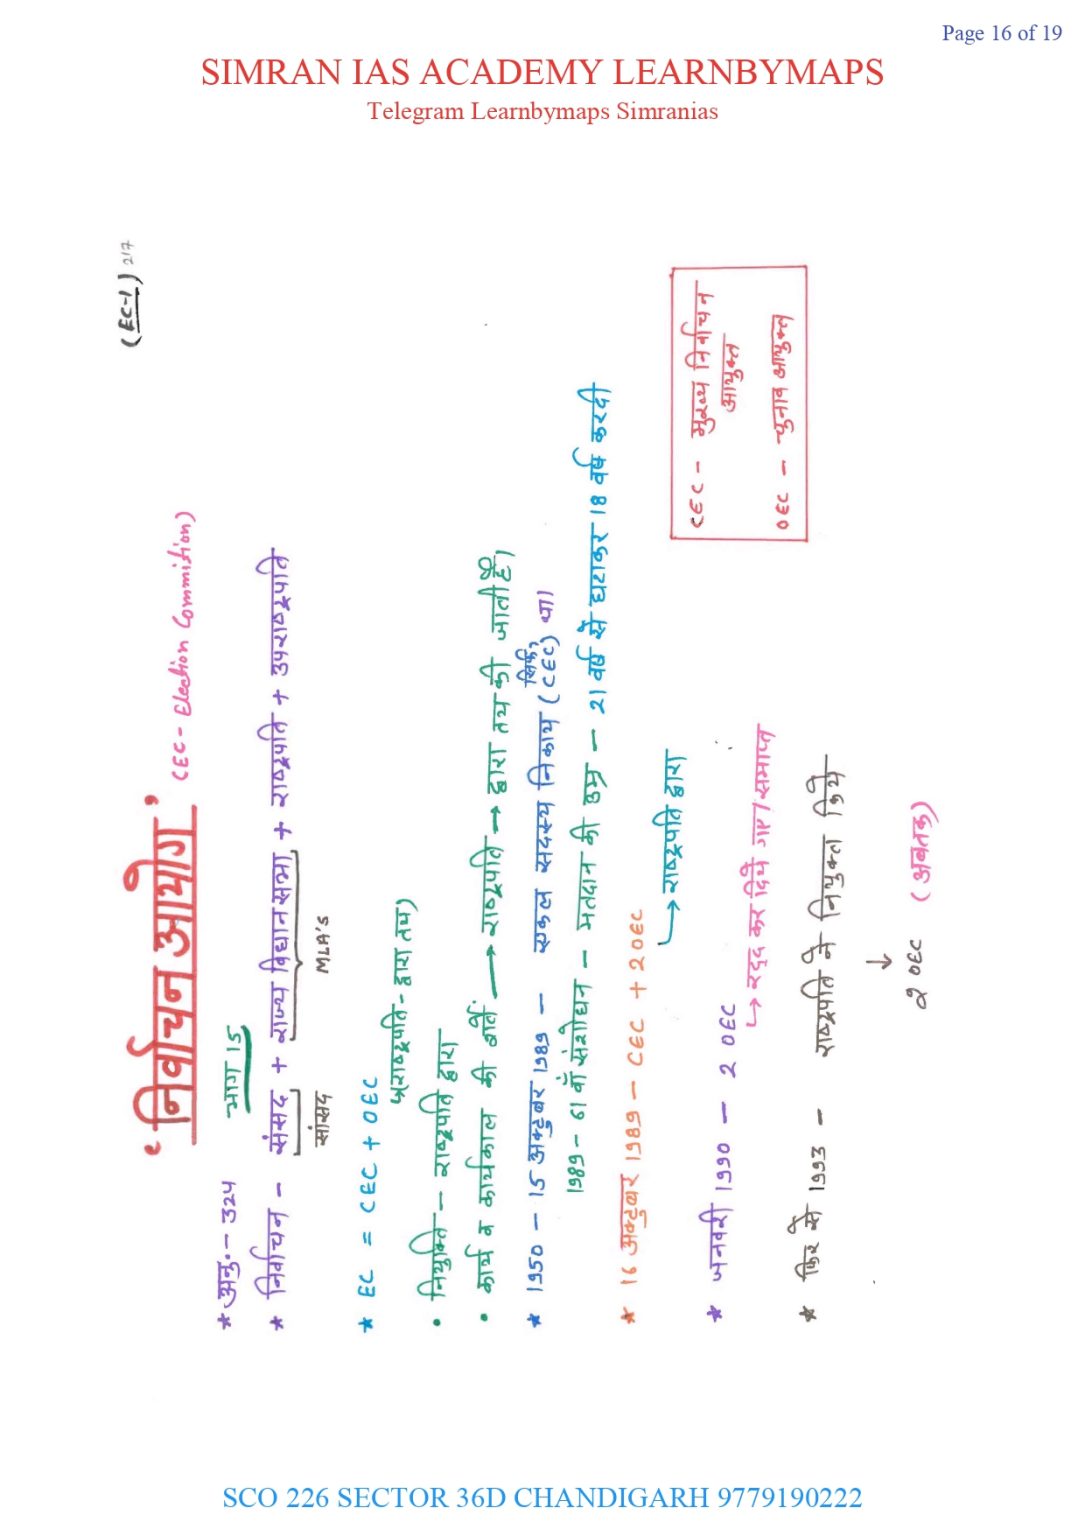 Page 16 of 19
SIMRAN IAS ACADEMY LEARNBYMAPS
Telegram Learnbymaps Simranias
(EC-1) 217
' निर्वाचन आयोग ' CEC - Election Commition)
* अनु॰ - 324 भाग 15
* निर्वाचन - संसद + राज्य विधानसभा + राष्ट्रपति + उपराष्ट्रपति
सांसद MLA's
* EC = CEC + OEC
(राष्ट्रपति - द्वारा तय)
• नियुक्ति - राष्ट्रपति द्वारा
• कार्य व कार्यकाल की शर्तें → राष्ट्रपति → द्वारा तय की जाती है।
* 1950 - 15 अक्टूबर 1989 - एकल सदस्य निकाय (सिर्फ, CEC) था।
1989 - 61 वाँ संशोधन - मतदान की उम्र - 21 वर्ष से घटाकर 18 वर्ष करदी
* 16 अक्टूबर 1989 - CEC + 2 OEC
→ राष्ट्रपति द्वारा
CEC - मुख्य निर्वाचन
आयुक्त
OEC - चुनाव आयुक्त
* जनवरी 1990 - 2 OEC
→ रद्द कर दिये गए / समाप्त
* फिर से 1993 - राष्ट्रपति ने नियुक्त किये
↓
2 OEC (अबतक)
SCO 226 SECTOR 36D CHANDIGARH 9779190222